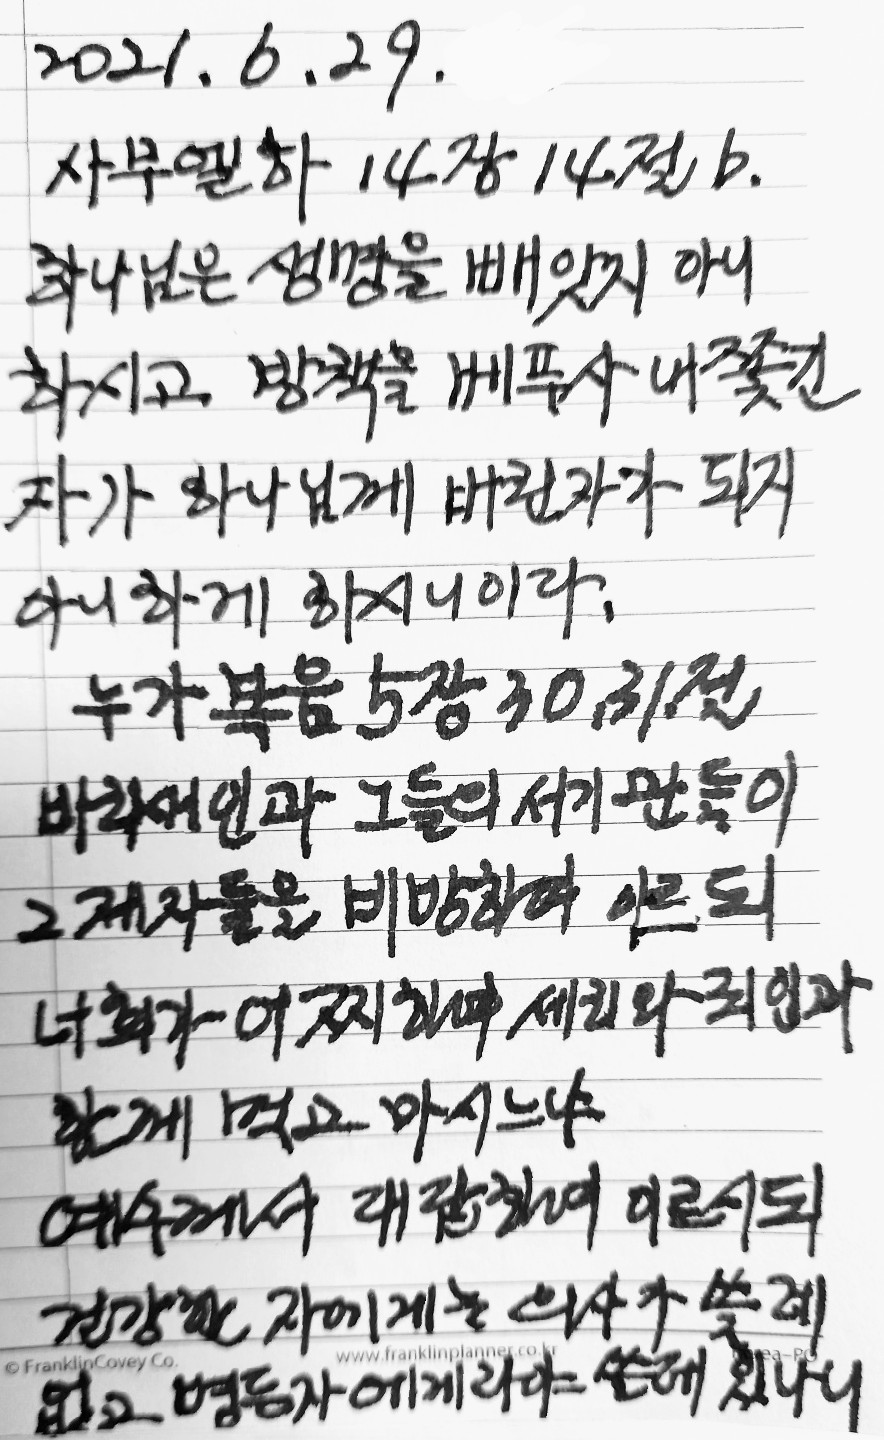 2021.6.29.
사무엘하 14장 14절 b.
하나님은 생명을 빼앗지 아니
하시고 방책을 베푸사 내쫓긴
자가 하나님께 버린자가 되지
아니하게 하시니이다.
누가복음 5장 30,31절
바리새인과 그들의 서기관들이
그 제자들을 비방하여 이르되
너희가 어찌하여 세리와 죄인과
함께 먹고 마시느냐
예수께서 대답하여 이르시되
건강한 자에게는 의사가 쓸데
© FranklinCovey Co. www.franklinplanner.co.kr
없고 병든자에게라야 쓸데 있나니